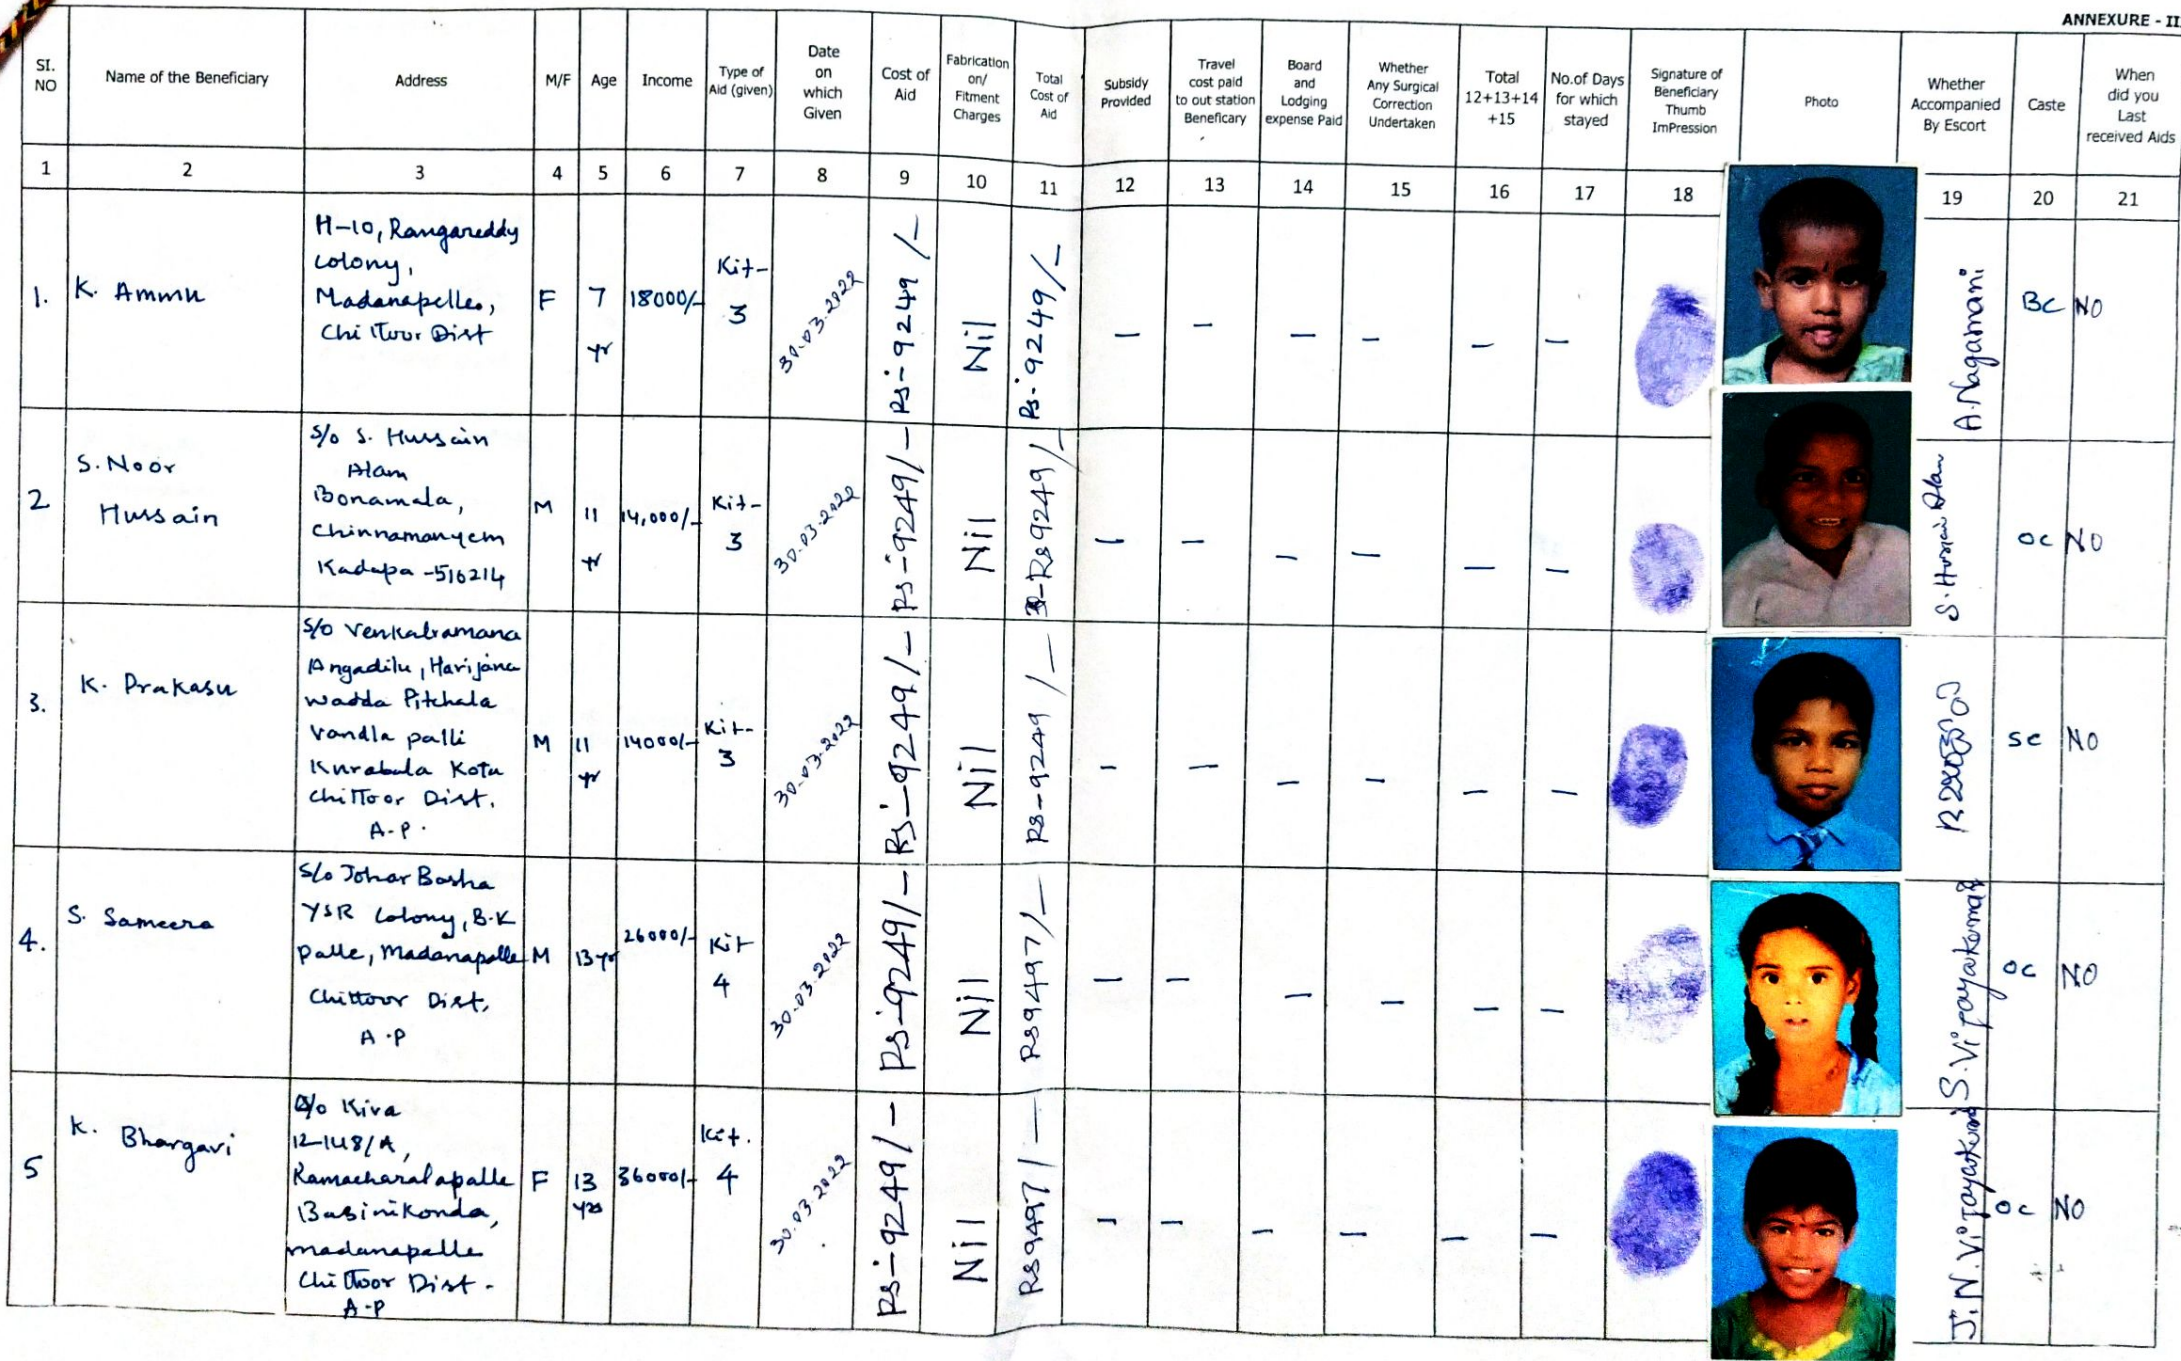 ANNEXURE - II
SI. NO
Name of the Beneficiary
Address
M/F
Age
Income
Type of Aid (given)
Date on which Given
Cost of Aid
Fabrication on/ Fitment Charges
Total Cost of Aid
Subsidy Provided
Travel cost paid to out station Beneficary
Board and Lodging expense Paid
Whether Any Surgical Correction Undertaken
Total 12+13+14 +15
No.of Days for which stayed
Signature of Beneficiary Thumb ImPression
Photo
Whether Accompanied By Escort
Caste
When did you Last received Aids
1 2 3 4 5 6 7 8 9 10 11 12 13 14 15 16 17 18 19 20 21
1.
K. Ammu
H-10, Rangareddy
Colony,
Madanapelle,
Chittoor Dist
F
7 yr
18000/-
Kit-3
30.03.2022
Rs-9249/-
Nil
Rs-9249/-
– – – – – –
A.Nagamani
BC
NO
2
S. Noor
Hussain
S/o S. Hussain
Alam
Bonamala,
Chinnamanyem
Kadapa -516214
M
11 yr
14,000/-
Kit-3
30.03.2022
Rs-9249/-
Nil
Rs9249/-
– – – – – –
S. Hussain Alam
OC
NO
3.
K. Prakasu
S/o Venkatramana
Angadilu, Harijana
wadda Pitchala
vandla palli
Kurabala Kota
Chittoor Dist.
A.P.
M
11 yr
14000/-
Kit-3
30.03.2022
Rs-9249/-
Nil
Rs-9249/-
– – – – – –
SC
NO
4.
S. Sameera
S/o Johar Basha
YSR Colony, B.K
Palle, Madanapalle
Chittoor Dist,
A.P
M
13 yr
26000/-
Kit 4
30.03.2022
Rs-9249/-
Nil
Rs9497/-
– – – – – –
S.Vijayakumar
OC
NO
5
K. Bhargavi
D/o Kiva
12-148/A,
Ramacharalapalle
Basinikonda,
madanapalle
Chittoor Dist-
A.P
F
13 yrs
36000/-
Kit. 4
30.03.2022
Rs-9249/-
Nil
Rs9497/-
– – – – – –
OC
NO